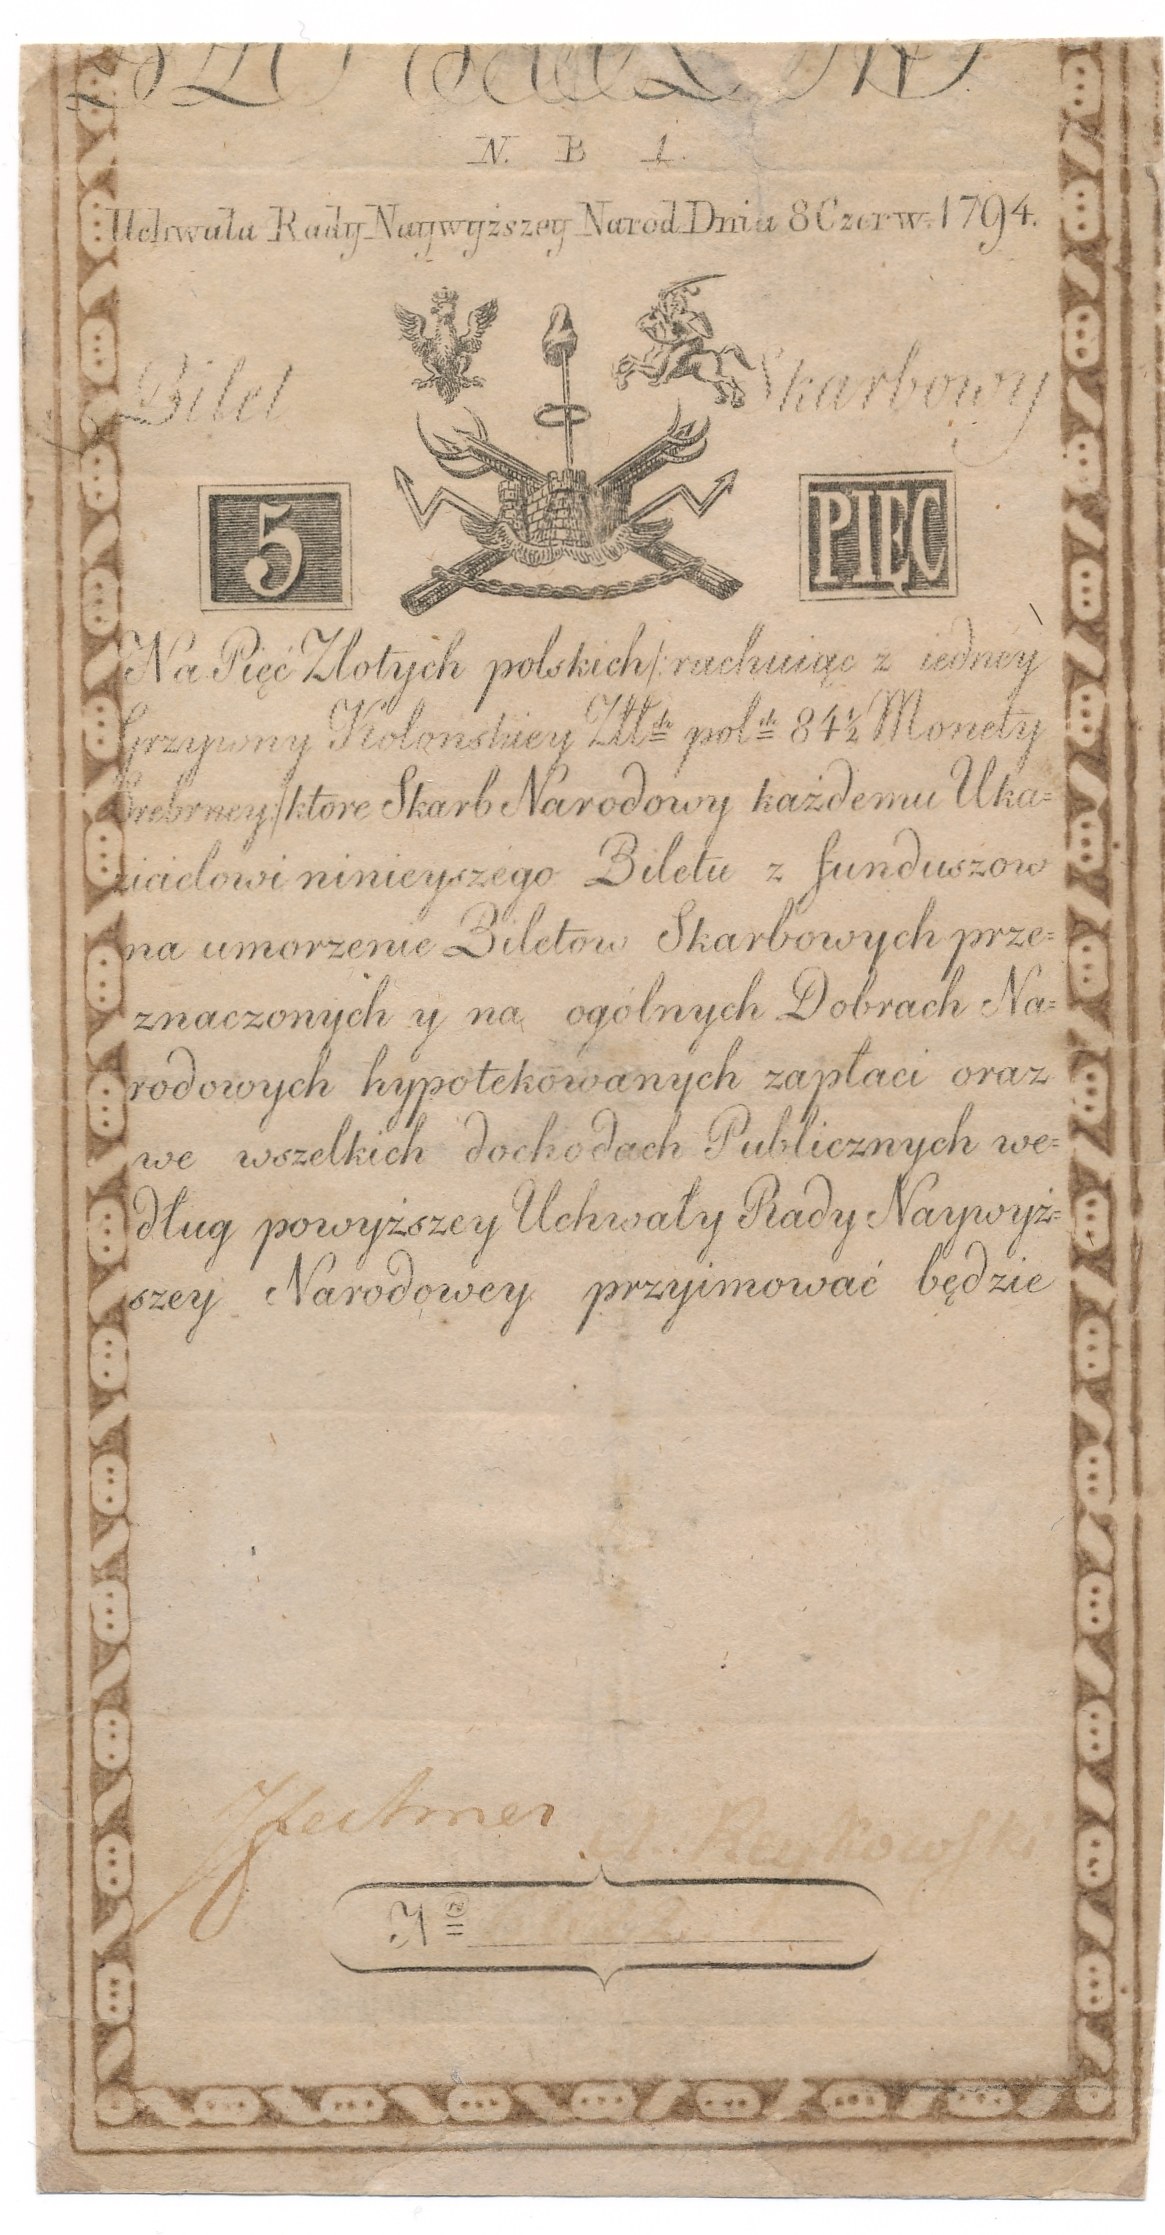 N. B 1.
Uchwała Rady Naywyższey Narod Dnia 8 Czerw: 1794.
Bilet Skarbowy
5 PIĘC
Na Pięć Złotych polskich/: rachuiąc z iedney
Grzywny Kolonskiey Złł: pol: 84½ Monety
Srebrney:/ktore Skarb Narodowy każdemu Uka=
zicielowi ninieyszego Biletu z funduszow
na umorzenie Biletow Skarbowych prze=
znaczonych y na ogólnych Dobrach Na=
rodowych hypotekowanych zapłaci oraz
we wszelkich dochodach Publicznych we=
dług powyższey Uchwały Rady Naywyż=
szey Narodowey przyimować będzie
A. Reykowski